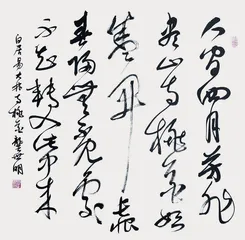 人間四月芳菲
盡山寺桃花始
盛開長恨
春歸無覓處
不知轉入此中來
白居易大林寺桃花